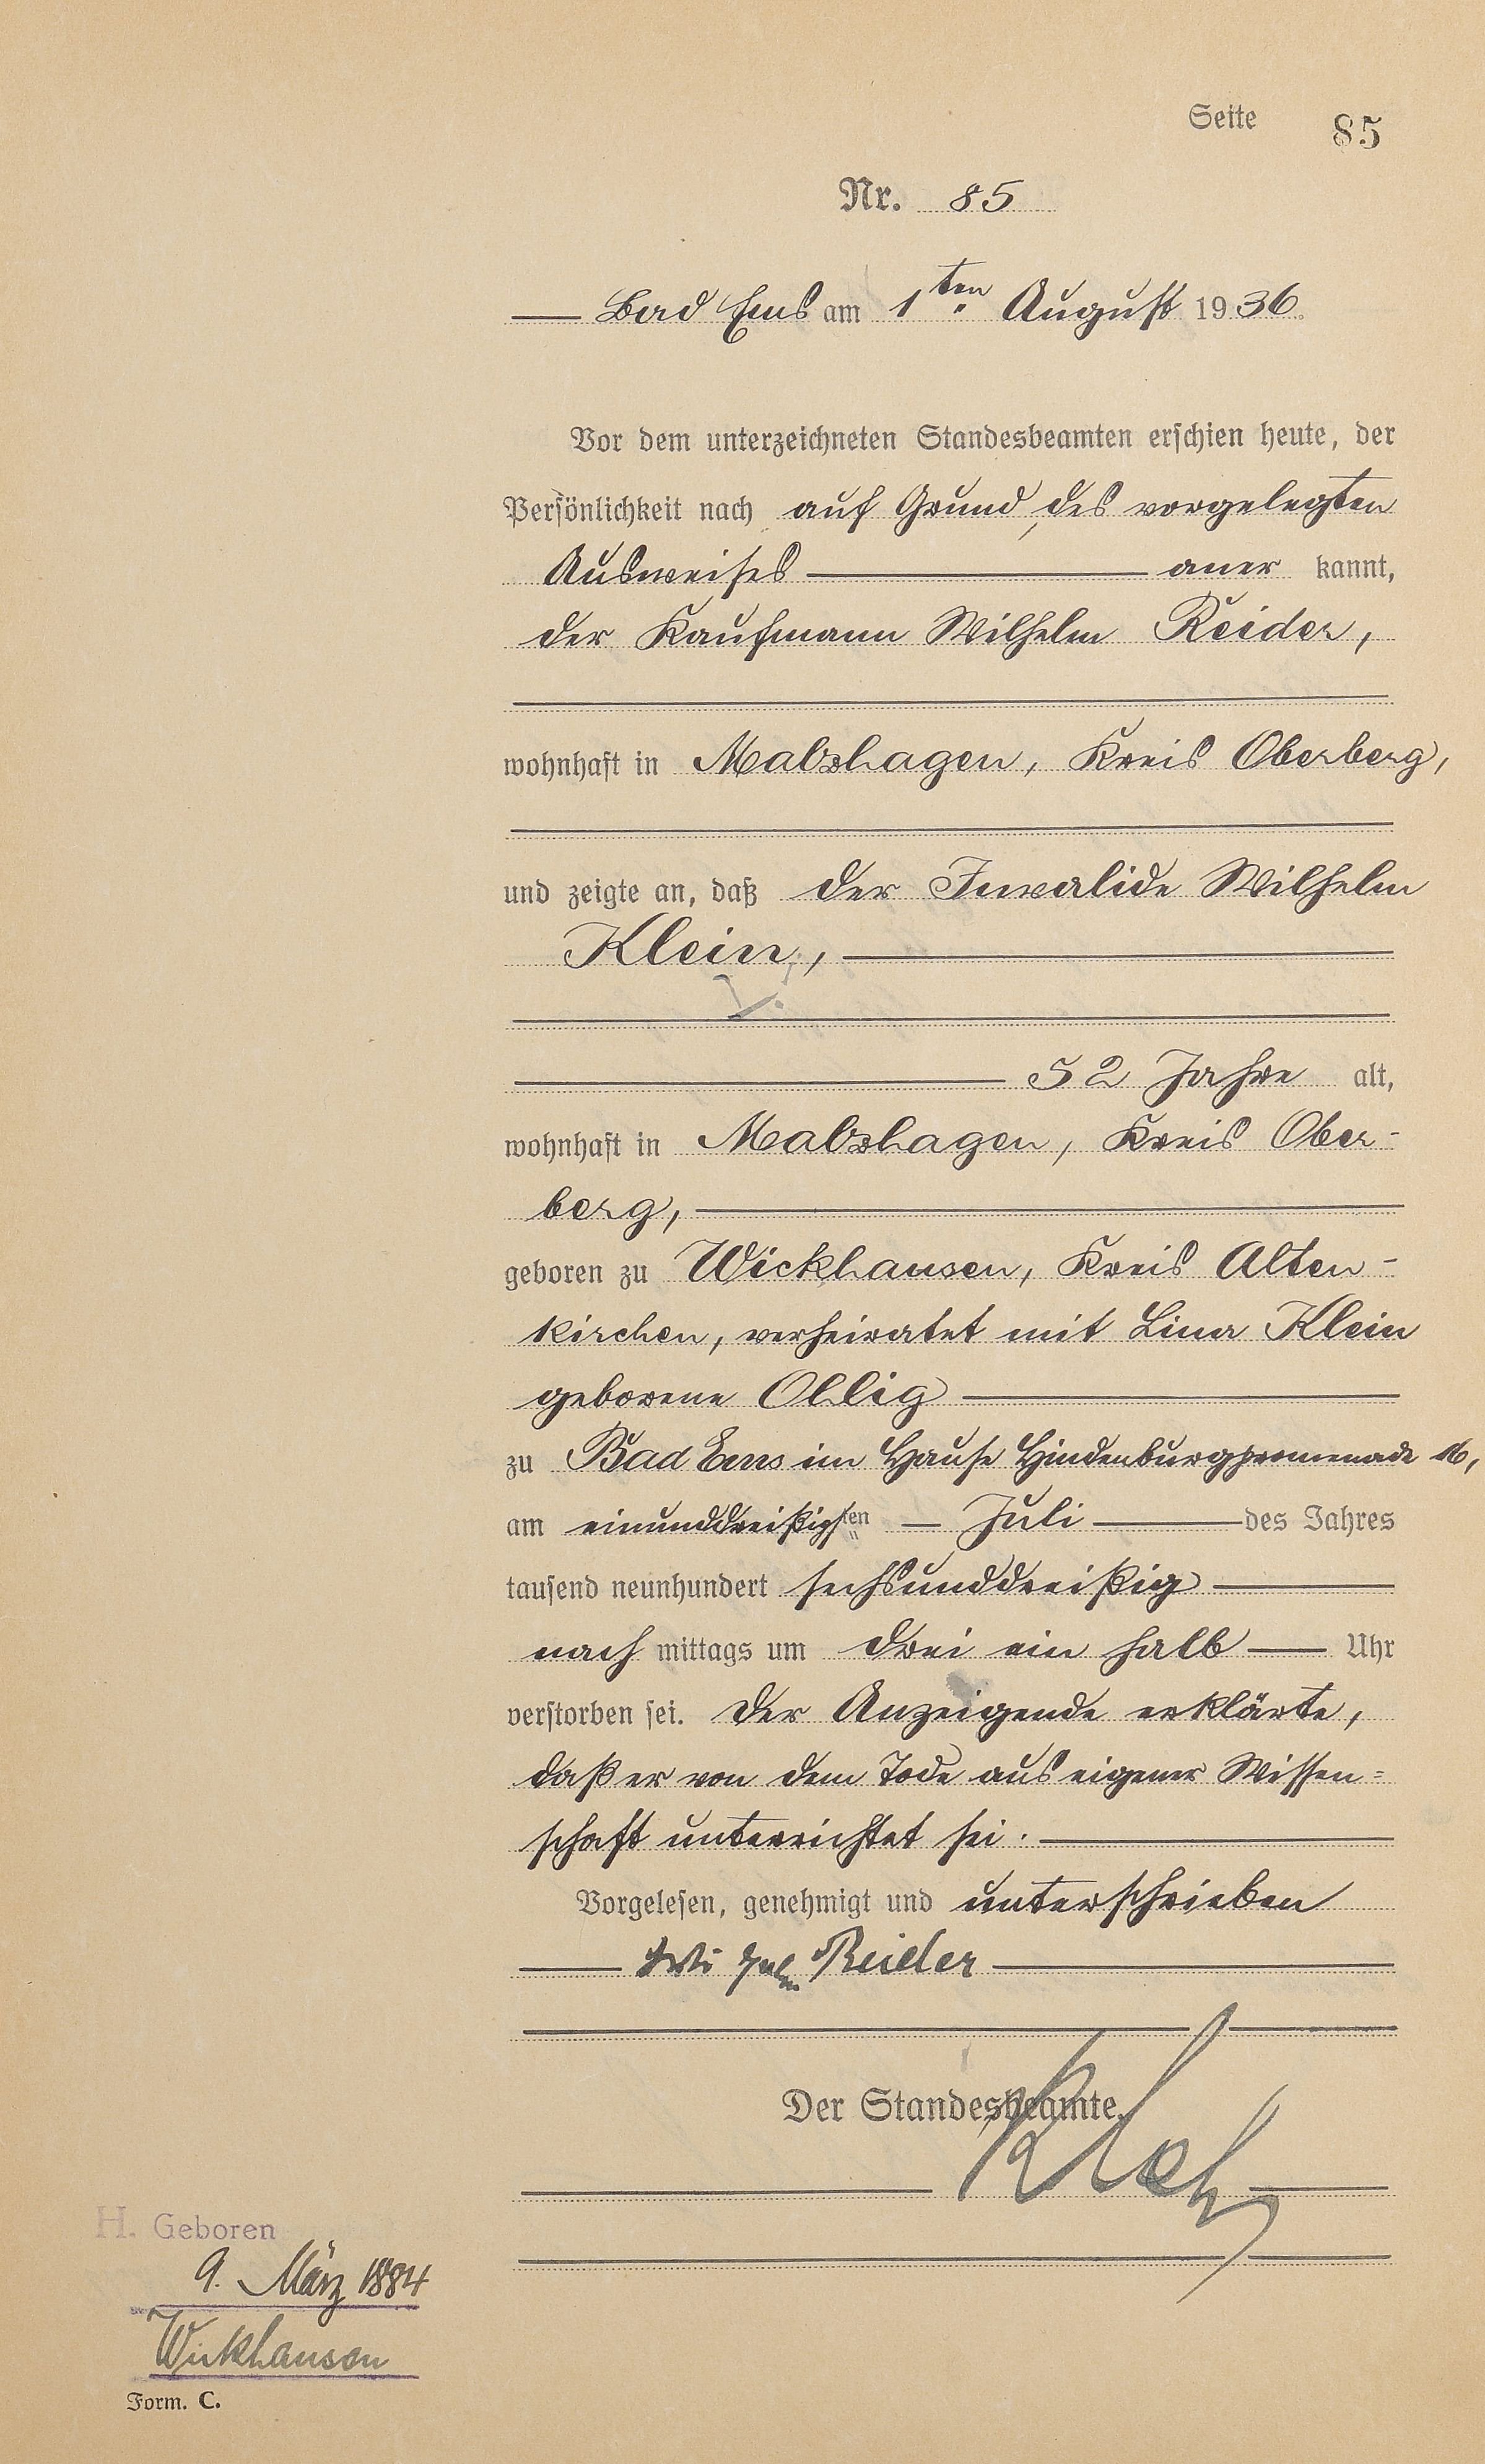 Seite 85
Nr. 85
Bad Ems am 1ten August 1936.
Vor dem unterzeichneten Standesbeamten erschien heute, der
Persönlichkeit nach auf Grund des vorgelegten
Ausweises aner kannt,
der Kaufmann Wilhelm Reider,
wohnhaft in Malzhagen, Kreis Oberberg,
und zeigte an, daß der Invalide Wilhelm
Klein,
52 Jahre alt,
wohnhaft in Malzhagen, Kreis Ober-
berg,
geboren zu Wickhausen, Kreis Alten-
kirchen, verheiratet mit Lina Klein
geborene Ohlig
zu Bad Ems im Hause Hindenburgpromenade 16,
am einunddreißigsten Juli des Jahres
tausend neunhundert sechsunddreißig
nach mittags um drei ein halb Uhr
verstorben sei. Der Anzeigende erklärte,
daß er von dem Tode aus eigener Wissen=
schaft unterrichtet sei.
Vorgelesen, genehmigt und unterschrieben
Wilhelm Reider
Der Standesbeamte.
H. Geboren
9. März 1884
Wickhausen
Form. C.